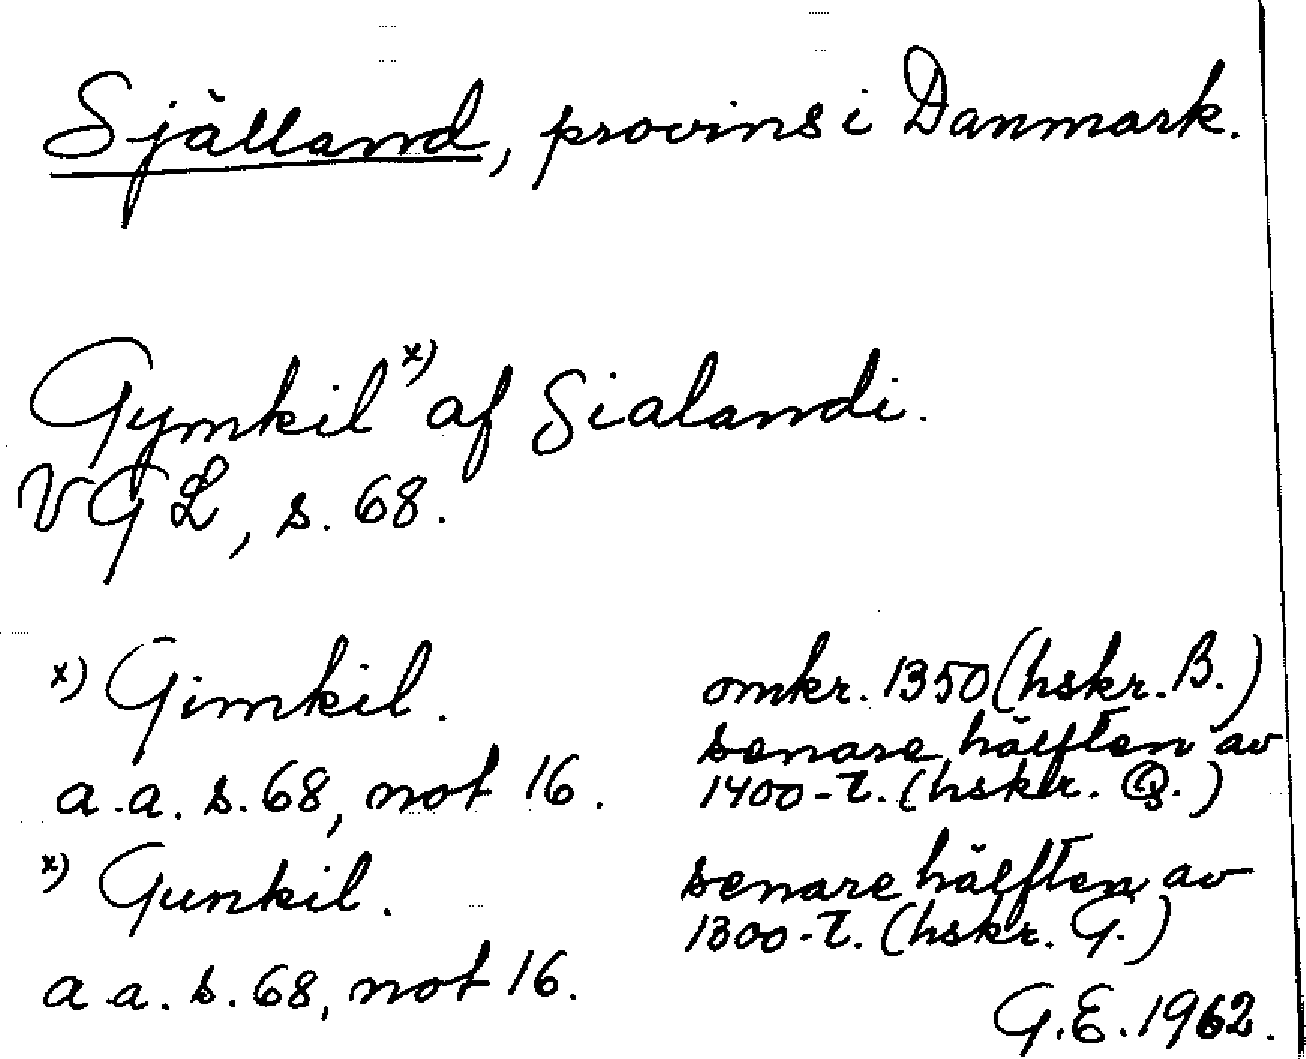 Själland, provins i Danmark.
Gymkil x) af Sialandi.
VGL, s. 68.
x) Gimkil. omkr. 1350 (hskr. B.)
senare hälften av
a.a. s. 68, not 16. 1400-t. (hskr. Q.)
x) Gunkil. senare hälften av
1300-t. (hskr. G.)
a.a. s. 68, not 16.
G.E. 1962.